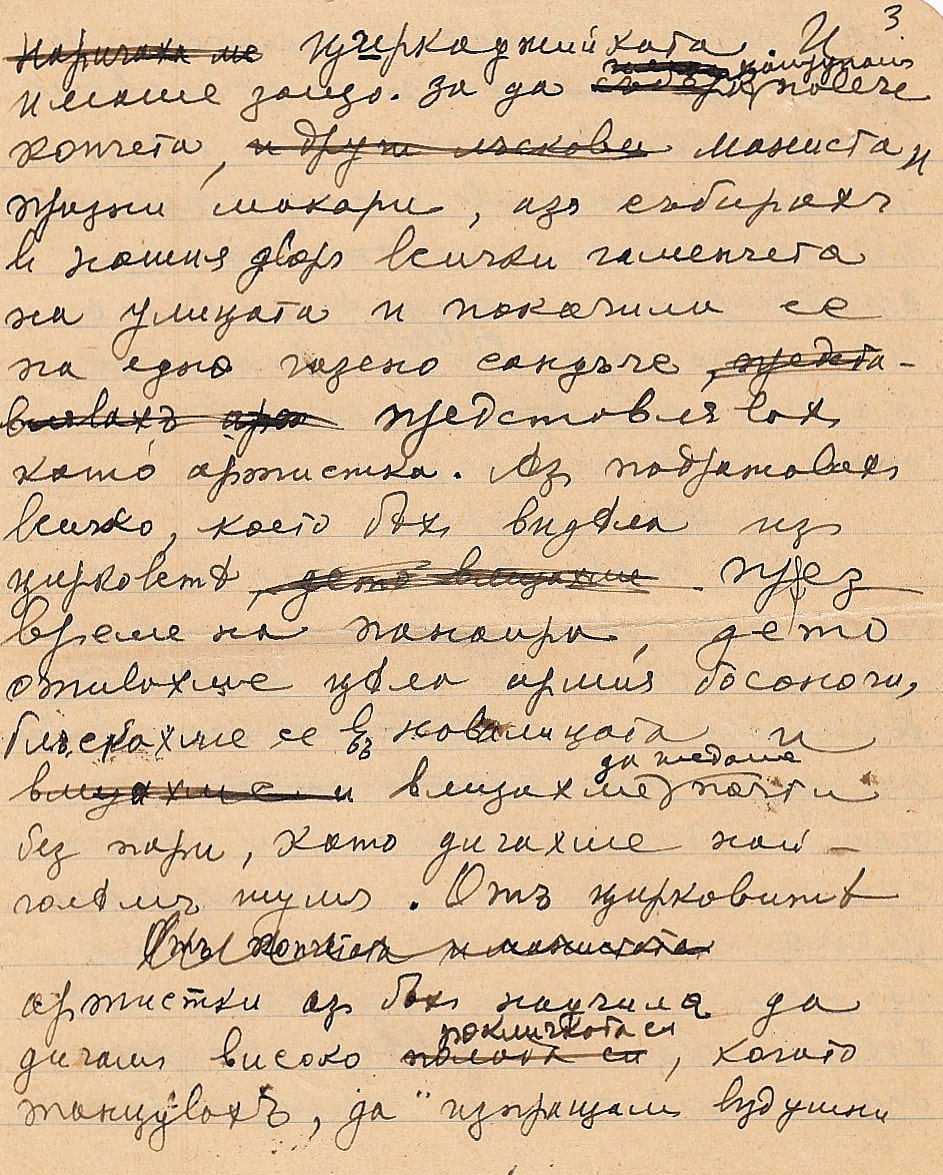 3.
Наричаха ме цчиркаджийката. И
имаше защо. За да натрупам повече
копчета, и други лъскави маниста и
празни макари, азъ събирахъ
в нашия двор всички гаменчета
на улицата и покачила се
на едно газено сандъче, предста-
влявахъ представлявахъ
като артистка. Азъ подражавахъ
всичко, което бѣхъ видѣла из
цирковетѣ, дето влизахме през
време на панаира, дето
отивахме цѣла армия босоноги,
блъскахме се въ навалицата и
влизахме и влизахме да гледаме почти
без пари, като дигахме най-
голѣмъ шумъ. Отъ цирковитѣ
Отъ копчетата и манистата
артистки аз бѣхъ научила да
дигамъ високо полата си поличката си, когато
танцувахъ, да изпращамъ въздушни